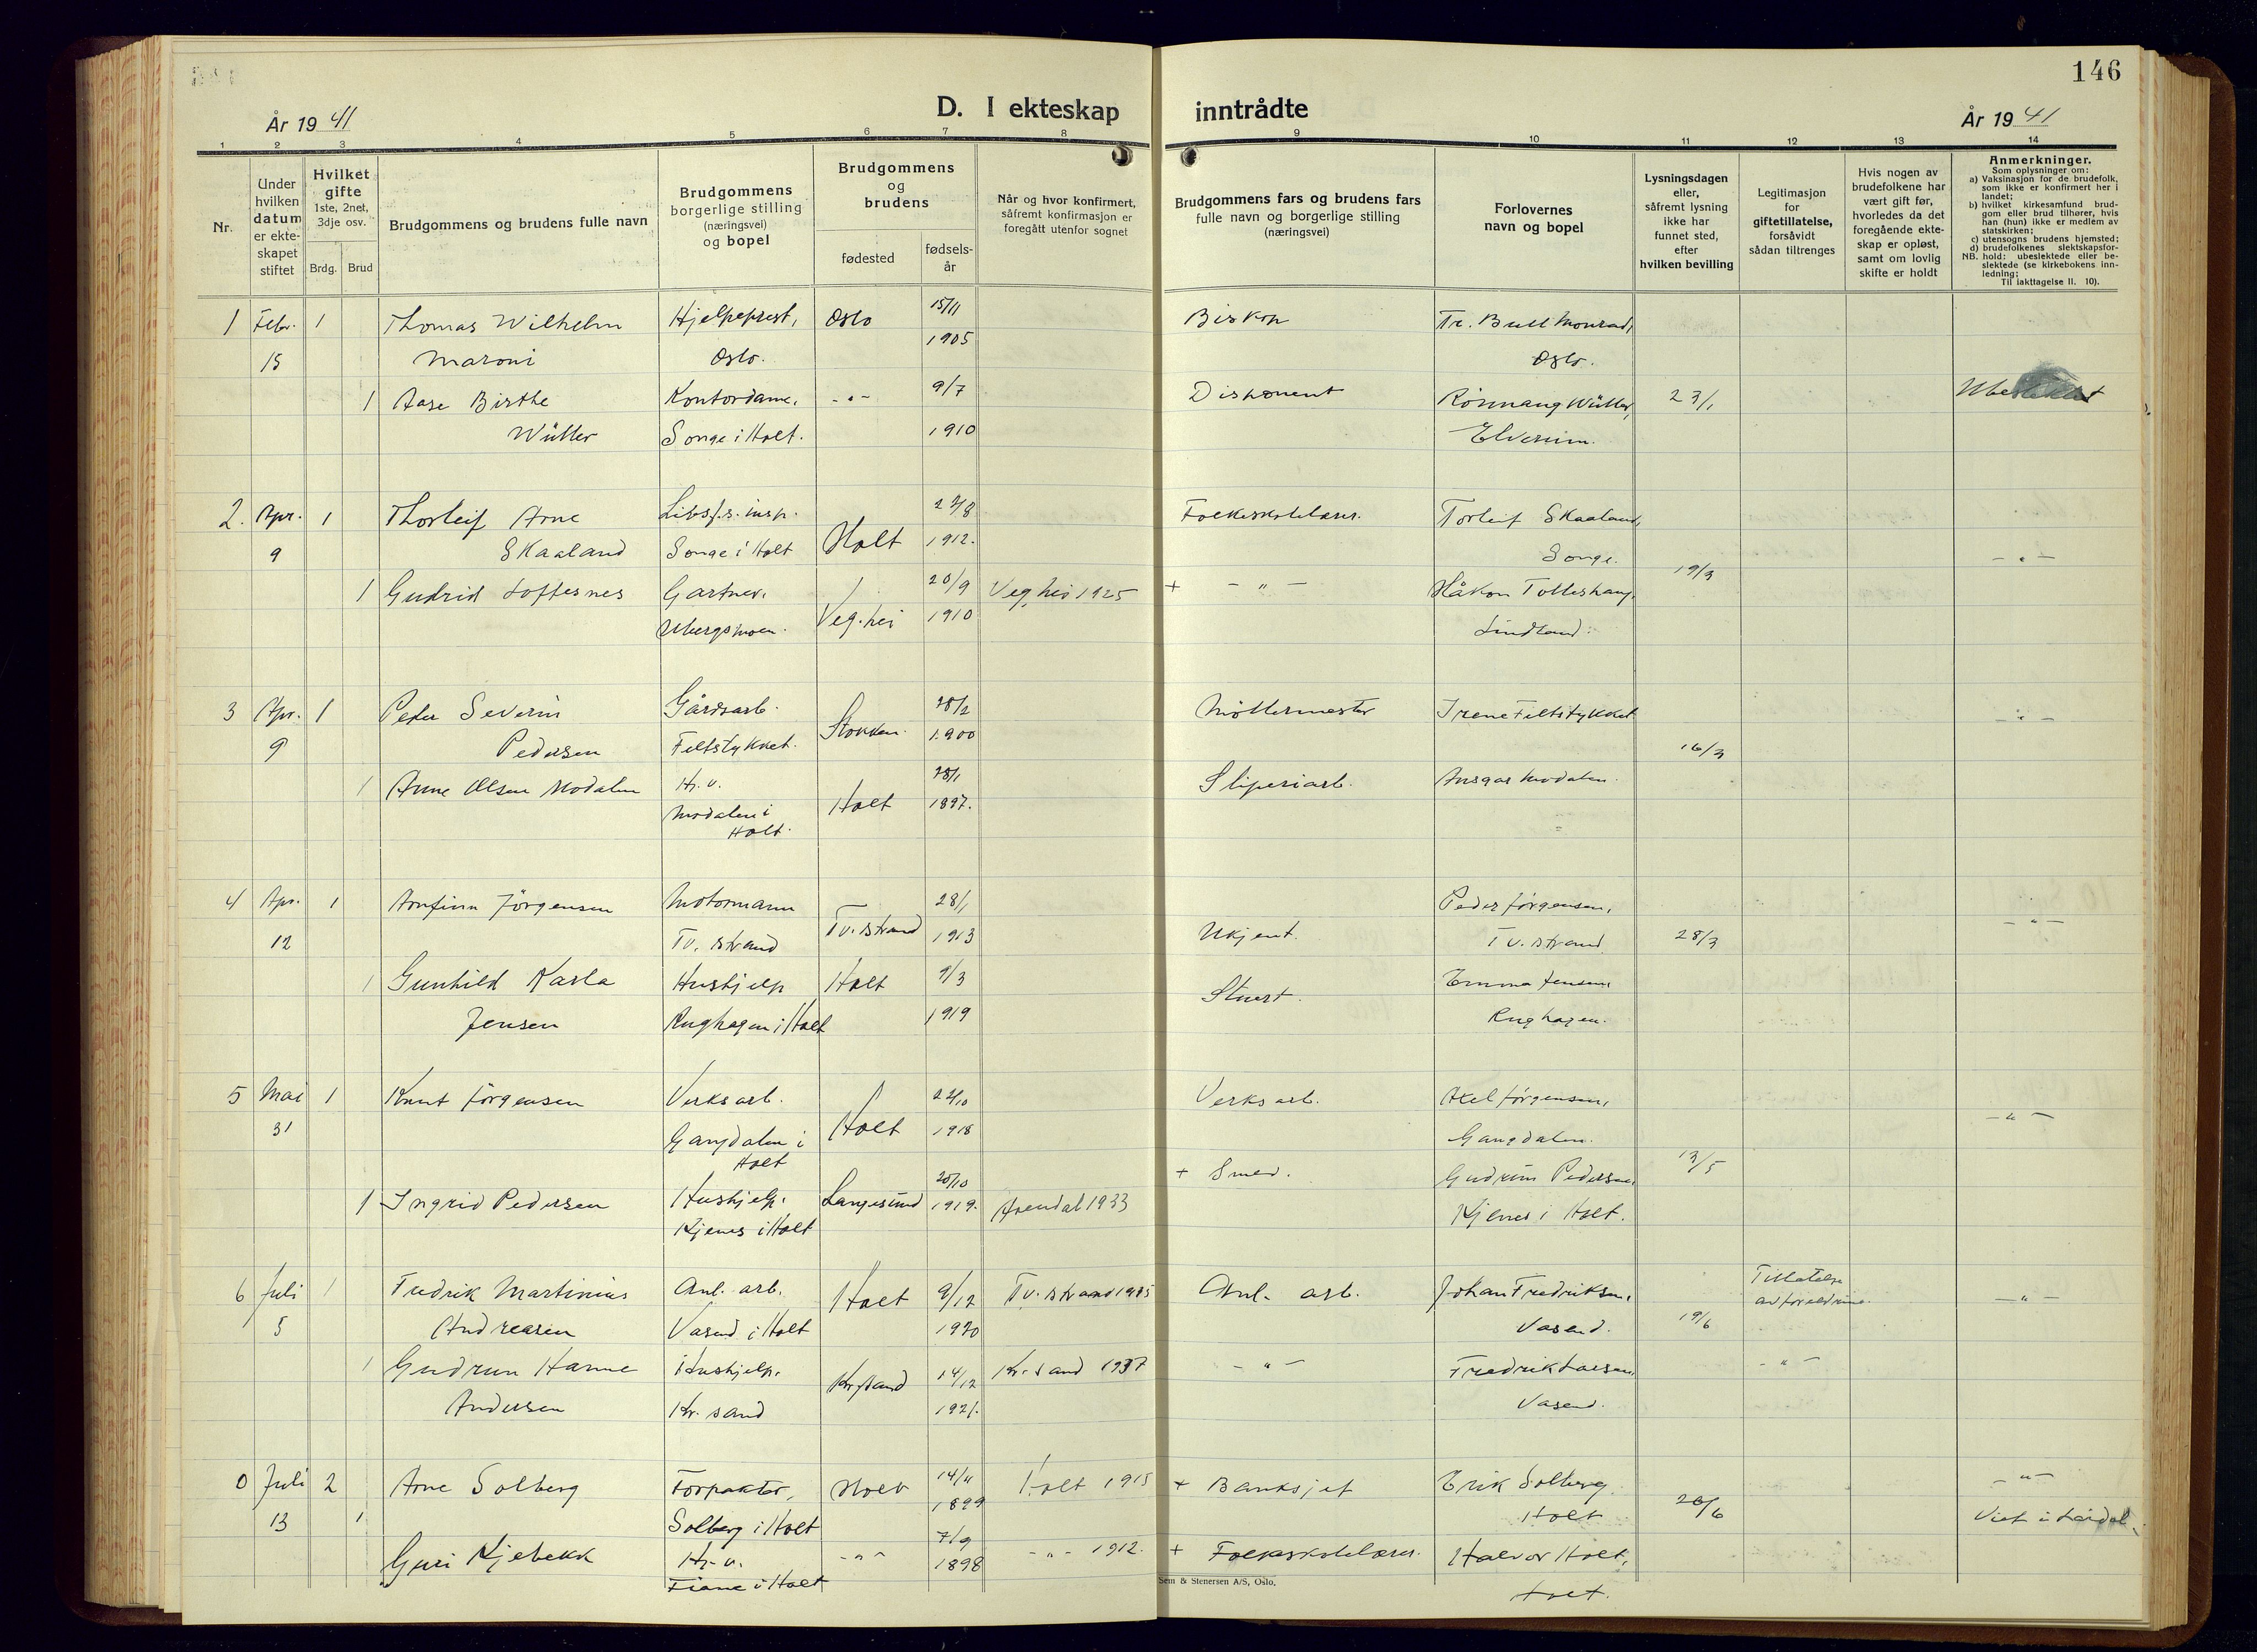 146
År 19 41
D. I ekteskap inntrådte
År 19 41
1 2 3 4 5 6 7 8 9 10 11 12 13 14
Nr.
Under hvilken datum er ekteskapet stiftet
Hvilket gifte 1ste, 2net, 3dje osv.
Brdg. Brud
Brudgommens og brudens fulle navn
Brudgommens borgerlige stilling (næringsvei) og bopel
Brudgommens og brudens
fødested
fødsels-år
Når og hvor konfirmert, såfremt konfirmasjon er foregått utenfor sognet
Brudgommens fars og brudens fars fulle navn og borgerlige stilling (næringsvei)
Forlovernes navn og bopel
Lysningsdagen eller, såfremt lysning ikke har funnet sted, efter hvilken bevilling
Legitimasjon for giftetillatelse, forsåvidt sådan tiltrenges
Hvis nogen av brudefolkene har vært gift før, hvorledes da det foregående ekteskap er opløst, samt om lovlig skifte er holdt
Anmerkninger.
Som oplysninger om:
a) Vaksinasjon for de brudefolk, som ikke er konfirmert her i landet;
b) hvilket kirkesamfund brudgom eller brud tilhører, hvis han (hun) ikke er medlem av statskirken;
c) utensogns brudens hjemsted;
d) brudefolkenes slektskapsforhold: ubeslektede eller beslektede (se kirkebokens innledning;
NB.
Til iakttagelse II. 10).
1 Febr. 1 Thomas Wilhelm Hjelpeprest, Oslo 15/11 Biskop Tr. Bull Monrad,
15 Maroni Oslo. 1905 Oslo.
1 Aase Birthe Kontordame, -"- 9/7 Disponent Wüller, 23/1
Wüller Songe i Holt. 1910 Elverum.
2. Apr. 1 Thorleif Arne 22/8 Folkeskolelærer. Torleif Skaaland,
9 Skaaland Songe i Holt Holt 1912. Songe. 19/3 -"-
1 Gudrid Loftesnes Gartner. 20/9 Veg.hei 1925 + -"- Håkon
Ubergsmoen. Veg.hei 1910 Lindland.
3 Apr. 1 Peder Severin Gårdsarb. Stokken. Möllermester Irene Feltstykket -"-
9 Pedersen Feltstykket. 1900 16/3
1 Anne Olsen Modalen H.v. 28/1 Sliperiarb. Ansgar Modalen.
Modalen i Holt. Holt 1897.
4 Apr. 1 Arnfinn Jörgensen Motormann 28/1 Peder Jörgensen,
12 Tv.strand Tv.strand 1913 Ukjent. Tv.strand 28/3 -"-
1 Gunhild Karla Hushjelp Holt 9/3 Stuert. Emma Jensen,
Jensen Rughagen i Holt 1919 Rughagen.
5 Mai 1 Knut Jörgensen Verksarb. 22/10 Verksarb. Axel Jörgensen,
31 Gangdalen i Holt Holt 1918 Gangdalen. -"-
13/5
1 Ingrid Pedersen Hushjelp. Langesund 25/10 1919. Arendal 1933 + Smed. Gudrun Pedersen,
Kjenes i Holt Kjenes i Holt.
6 Juli 1 Fredrik Martinius Anl. arb. Holt 9/12 Tv.strand 1935 Anl. arb. Johan Fredriksen, Tillatelse av foreldrene. -"-
5 Andreasen Vasend i Holt 1920 Vasend. 19/6
1 Gudrun Hanne Hushjelp. Kr.sand 14/12 Kr.sand 1937 -"- Fredrik Larsen, -"-
Andersen Kr.sand 1921. Vasend.
0 Juli 2 Arne Solberg Forpakter, Holt 14/11 Holt 1915 + Banksjef Erik Solberg, -"-
13 1 Solberg i Holt 1899 Holt 26/6 Viet i
Guri Kjebekk H.v. -"- 7/9 1898 -"- 1912. + Folkeskolelærer. Halvor Holt,
Fiane i Holt Holt.
Sem & Stenersen A/S, Oslo.